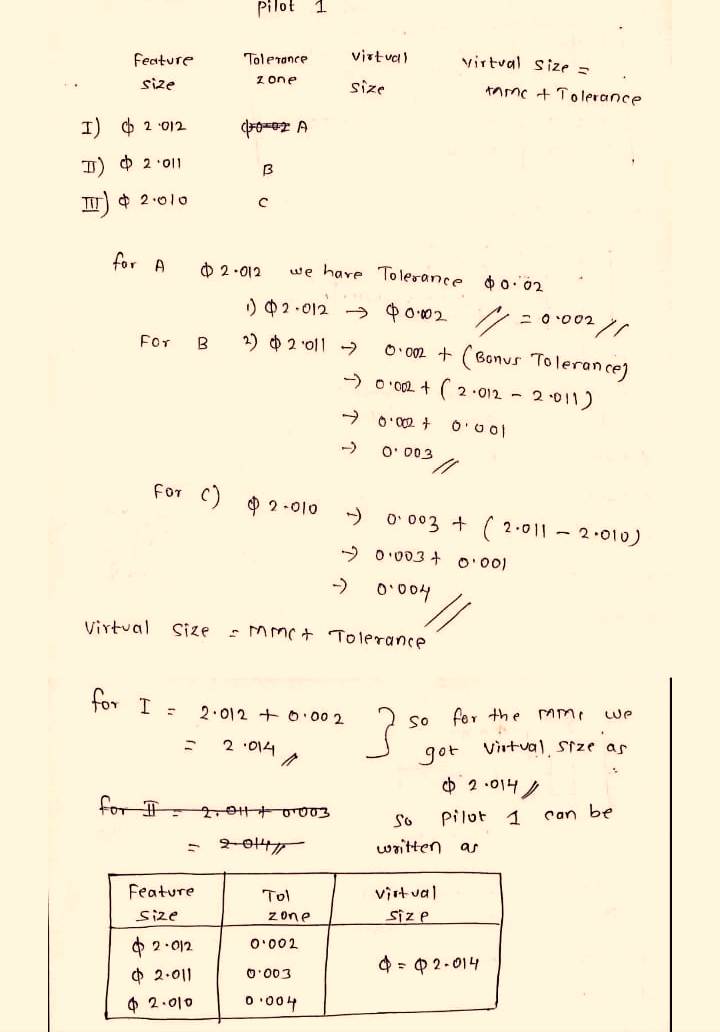 Pilot 1
Feature Tolerance Virtual Virtual Size =
size zone Size mmc + Tolerance
I) ф 2.012 ф0.02 A
II) ф 2.011 B
III) ф 2.010 C
for A ф 2.012 we have Tolerance ф0.02
1) ф2.012 → ф0.002 // = 0.002 //
For B 2) ф2.011 → 0.002 + (Bonus Tolerance)
→ 0.002 + ( 2.012 - 2.011 )
→ 0.002 + 0.001
→ 0.003 //
For C) ф 2.010 → 0.003 + ( 2.011 - 2.010)
→ 0.003 + 0.001
→ 0.004 //
Virtual Size = mmc + Tolerance
for I = 2.012 + 0.002 } so for the mmc we
= 2.014 // got Virtual size as
ф 2.014 //
for II = 2.011 + 0.003 So pilot 1 can be
= 2.014 // written as
Feature Tol Virtual
Size zone size
ф 2.012 0.002
ф 2.011 0.003 ф = ф 2.014
ф 2.010 0.004